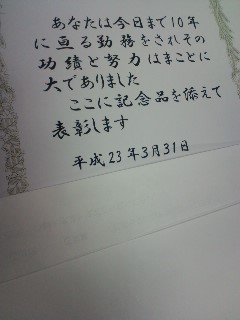 あなたは今日まで10年
に亘る勤務をされその
功績と努力はまことに
大でありました
ここに記念品を添えて
表彰します
平成23年3月31日